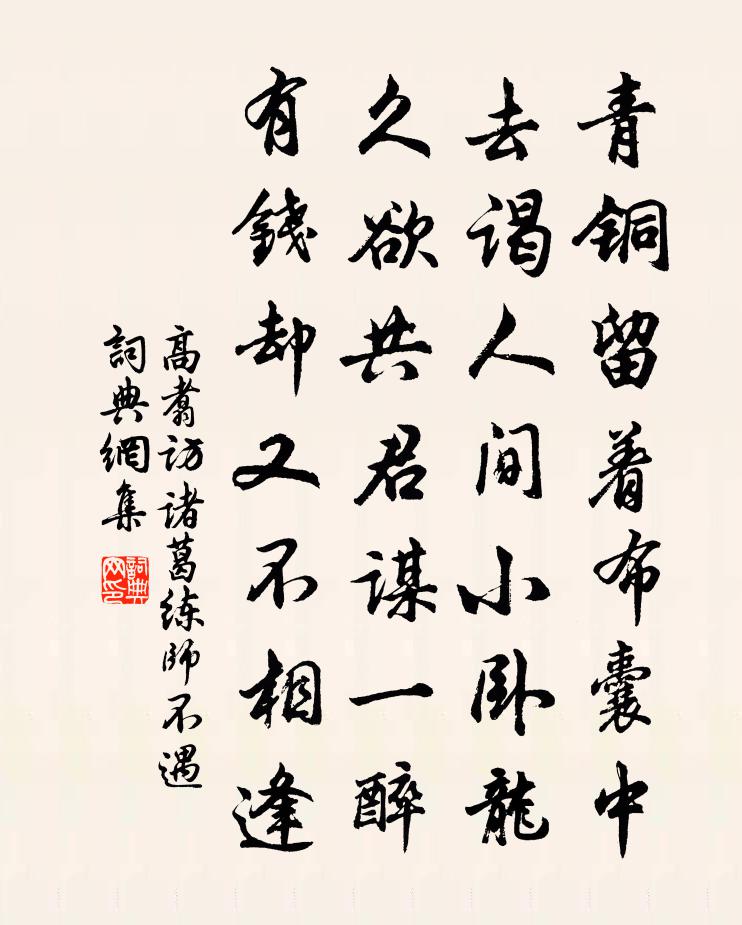 青铜留着布囊中
去谒人间小卧龍
久欲共君谋一醉
有錢却又不相逢
高翥访诸葛练师不遇
詞典網集
詞典网印